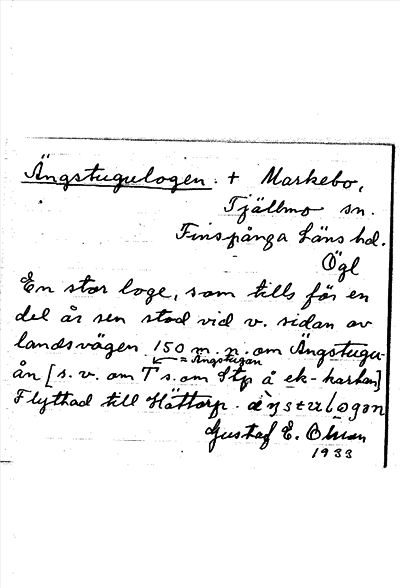 Ängstugulogen. + Markebo,
Tjällmo sn.
Finspånga Läns hd.
Ögl
En stor loge, som tills för en
del år sen stod vid v. sidan av
landsvägen 150 m n. om Ängstugu-
= Ängstugan
ån [s.v. om T s. om Stp å ek-kartan]
Flyttad till Hättorp.
Gustaf E. Olsson
1933